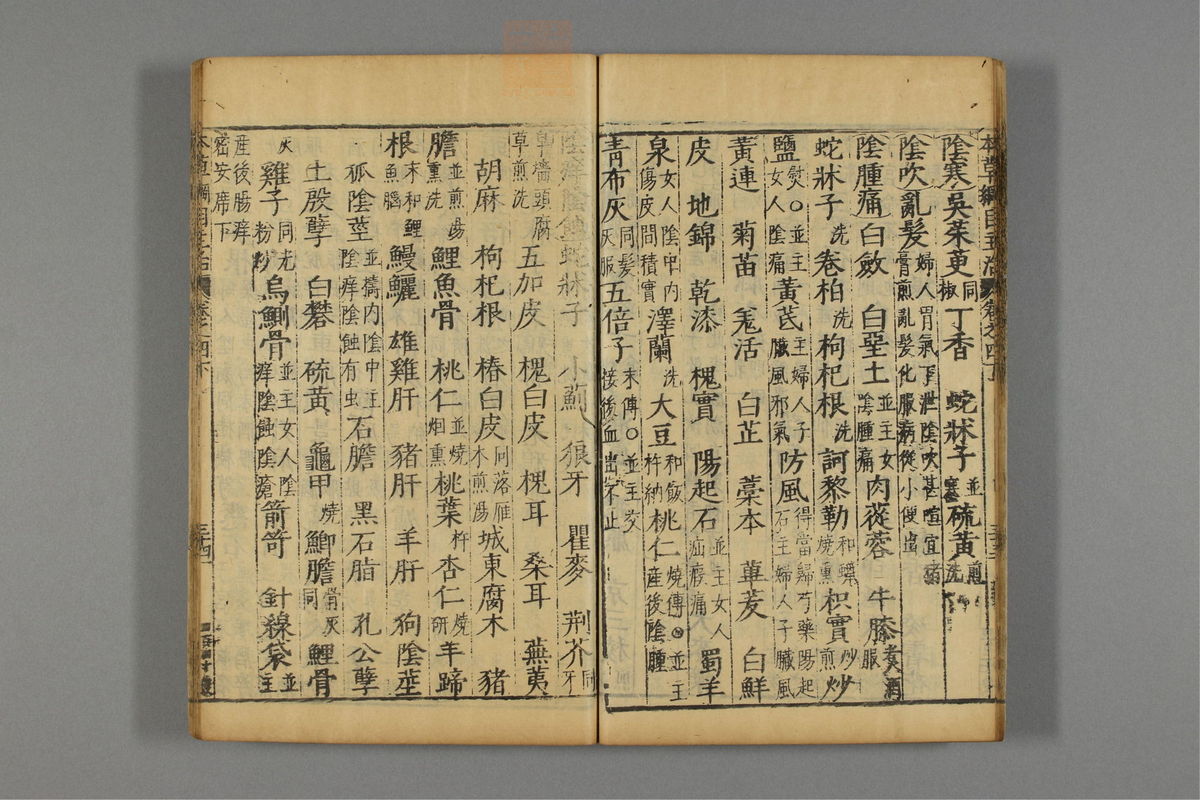 本草綱目主治 卷之四下
陰寒吳茱萸同椒丁香 蛇牀子並塞硫黃煎洗
陰吹亂髮婦人胃氣下泄陰吹甚喧宜猪膏煎亂髮化服病從小便出
陰腫痛白斂 白堊土並主女陰腫痛肉蓯蓉 牛膝煑酒服
蛇牀子洗卷柏洗枸杞根洗訶黎勒和蠟燒熏枳實炒煎炒
鹽熨○並主女人陰痛黃芪主婦人子臟風邪氣防風得當歸芍藥陽起石主婦人子臟風
黃連 菊苗 羌活 白芷 藁本 蓽茇 白鮮
皮 地錦 乾漆 槐實 陽起石並主女人疝瘕痛 蜀羊
泉女人陰中內傷皮間積實澤蘭洗大豆和飯杵納桃仁燒傅○並主產後陰腫
青布灰同髮灰服五倍子末傅○並主交接後血出不止
陰痒陰蝕蛇牀子 小薊 狼牙 瞿麥 荆芥同牙
皁墻頭腐草煎洗 五加皮 槐白皮 槐耳 桑耳 蕪荑
胡麻 枸杞根 椿白皮同落雁木煎湯城東腐木 猪
膽並煎湯熏洗 鯉魚骨 桃仁並燒烟熏桃葉杵杏仁燒研羊蹄
根末和鯉魚腦鰻鱺 雄雞肝 猪肝 羊肝 狗陰莖
狐陰莖並擣內陰中主陰痒陰蝕有虫石膽 黑石脂 孔公孽
土殷孽 白礬 硫黃 龜甲燒鯽膽骨灰同鯉骨
灰雞子同光粉炒烏鰂骨並主女人陰痒陰蝕陰瘡箭笴 針線袋並主
產後腸痒密安席下
本草綱目主治 卷之四下